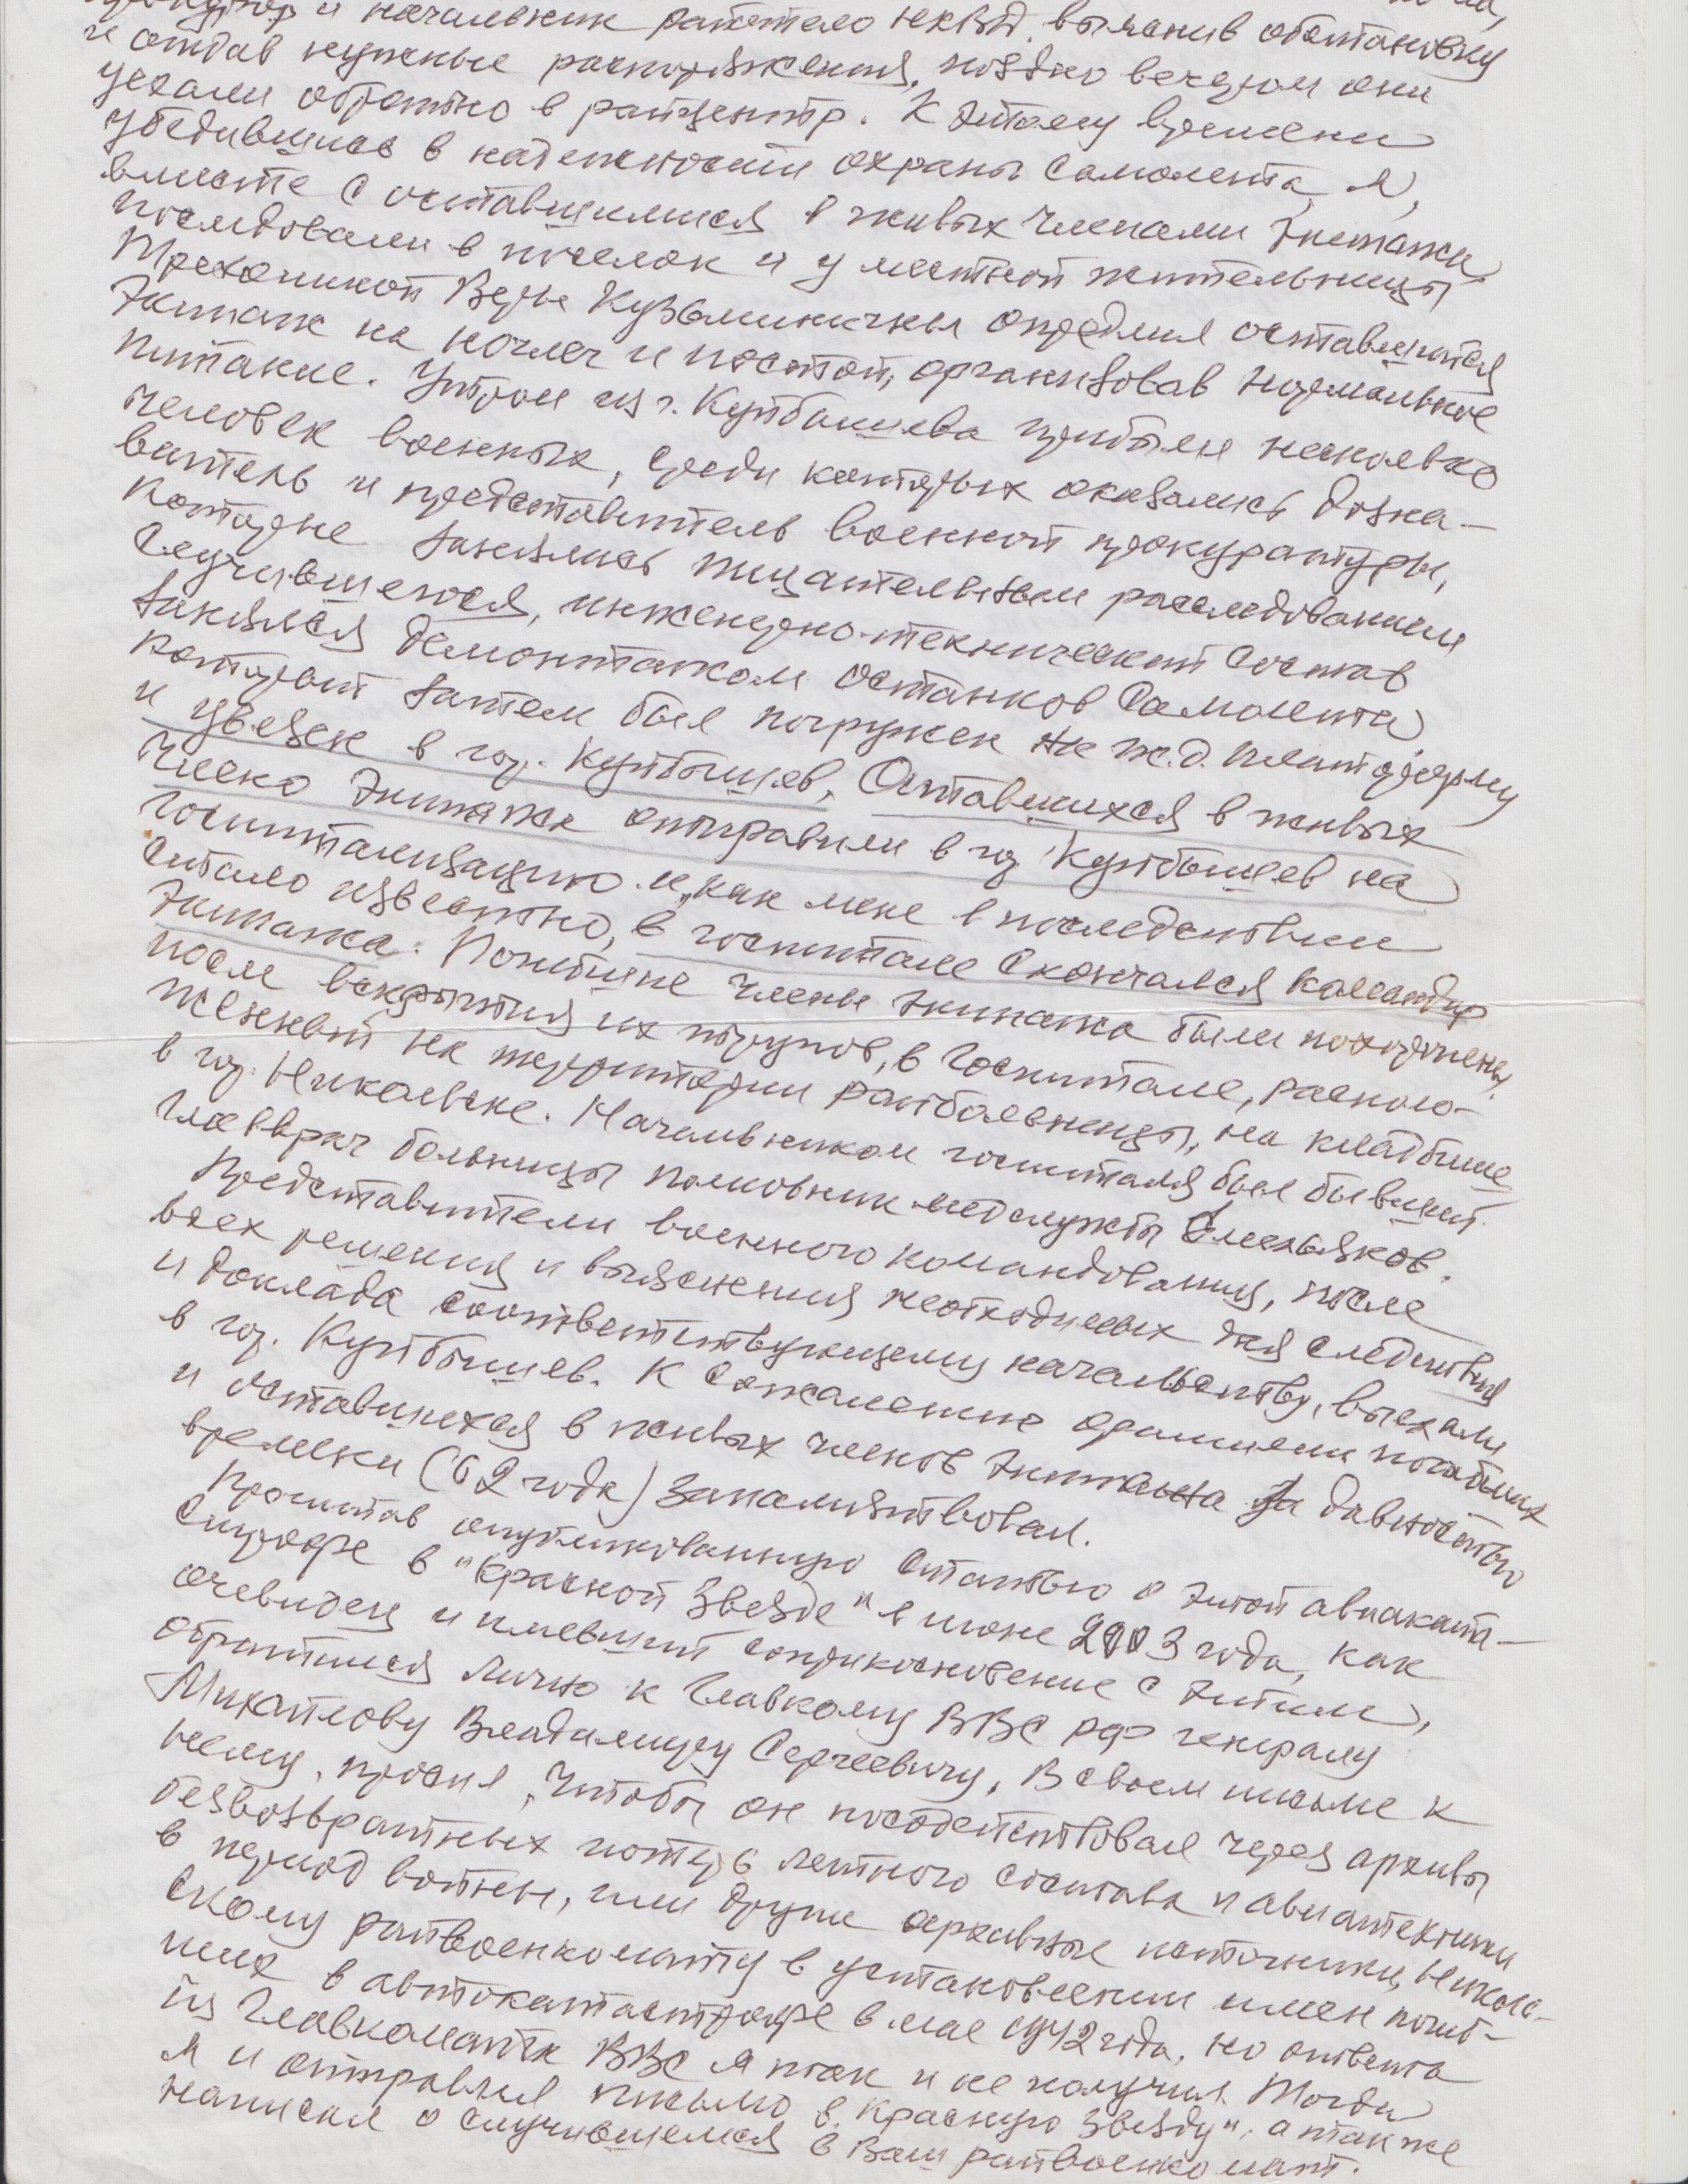 прокурор и начальник райотдела НКВД. Выяснив обстановку
и отдав нужные распоряжения, поздно вечером они
уехали обратно в райцентр. К этому времени
убедившись в надежности охраны самолета, я,
вместе с оставшимися в живых членами экипажа
последовали в поселок и у местной жительницы
Вере Кузьминичны определил оставшийся
экипаж на ночлег и постой, организовав нормальное
питание. Утром из г. Куйбышева прибыли несколько
человек военных, среди которых оказались дозна-
ватель и представитель военной прокуратуры,
которые занялись тщательным расследованием
случившегося, инженерно-технический состав
занялся демонтажом останков самолета
который затем был погружен на ж.д. платформу
и увезен в гор. Куйбышев, Оставшихся в живых
члено экипажа отправили в гор Куйбышев на
госпитализацию и, как мне в последствии
стало известно, в госпитале скончался командир
экипажа. Погибшие члены экипажа были похоронены,
после вскрытия их трупов, в госпитале, располо-
женный на территории райбольницы, на кладбище
в гор. Никольске. Начальником госпиталя был бывший
главврач больницы полковник медслужбы
Представители военного командования, после
всех решения и выяснения необходимых для следствия
и доклада соответствующему начальству, выехали
в гор. Куйбышев. К сожалению фамилии погибших
и оставшихся в живых членов экипажа за давностью
времени (62 года) запамятовал.
Прочитав опубликованную статью о этой авиаката-
строфе в "Красной Звезде" в июне 2003 года, как
очевидец и имевший соприкосновение с этим,
обратился лично к Главкому ВВС РФ генералу
Михайлову Владимиру Сергеевичу, В своем письме к
нему, просил, чтобы он посодействовал через архивы
безвозвратных потерь летного состава и авиатехники
в период войны, или другие архивные источники, Николь-
скому райвоенкомату в установлении имен погиб-
ших в автокатастрофе в мае 1942 года, но ответа
из Главкомата ВВС я так и не получил. Тогда
я и отправил письмо в "Красную Звезду", а также
написал о случившемся в Ваш райвоенкомат.